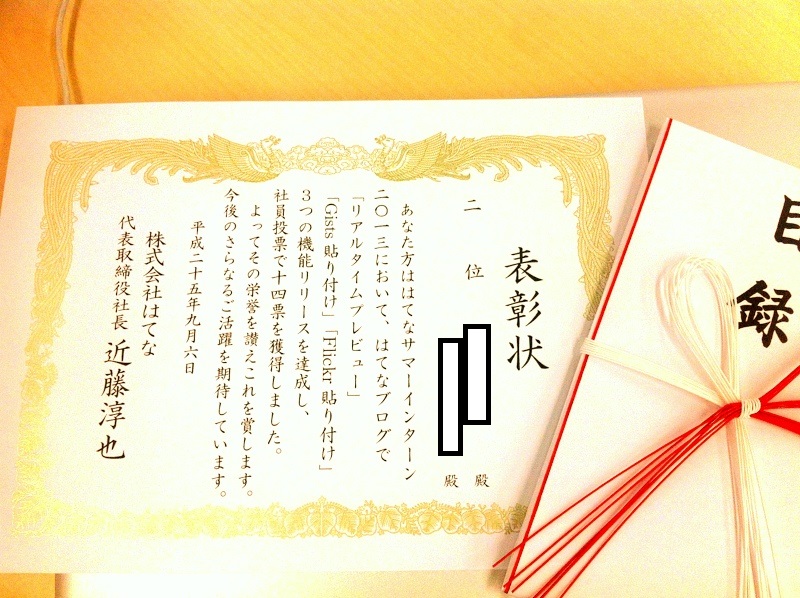 表彰状
二位
殿
殿
あなた方ははてなサマーインターン
二〇一三において、はてなブログで
「リアルタイムプレビュー」
「Gists 貼り付け」「Flickr 貼り付け」
３つの機能リリースを達成し、
社員投票で十四票を獲得しました。
よってその栄誉を讃えこれを賞します。
今後のさらなるご活躍を期待しています。
平成二十五年九月六日
株式会社はてな
代表取締役社長 近藤淳也
目録